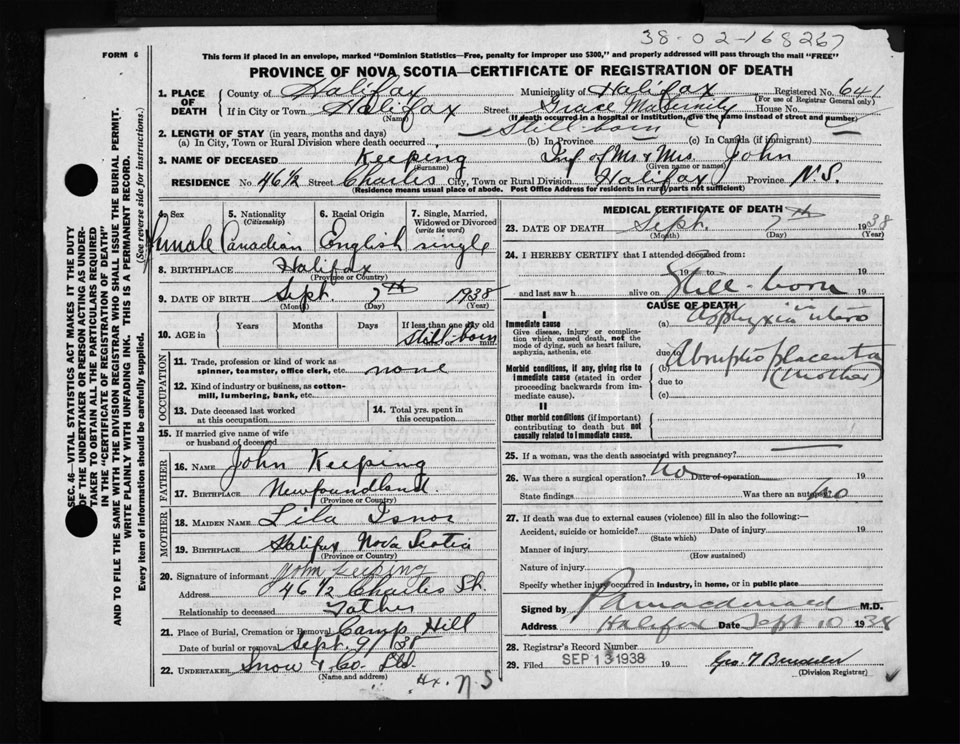 38-02-168267
FORM 6
This form if placed in an envelope, marked "Dominion Statistics—Free, penalty for improper use $300," and properly addressed will pass through the mail "FREE"
PROVINCE OF NOVA SCOTIA—CERTIFICATE OF REGISTRATION OF DEATH
1. PLACE OF DEATH County of Halifax Municipality of Halifax Registered No. 641
(For use of Registrar General only)
If in City or Town Halifax Street Grace Maternity House No.
(Name) (If death occurred in a hospital or institution, give the name instead of street and number)
2. LENGTH OF STAY (in years, months and days) Still-born
(a) In City, Town or Rural Division where death occurred (b) In Province (c) In Canada (if immigrant)
3. NAME OF DECEASED Keeping Inf of Mr & Mrs. John
(Surname) (Given name or names)
RESIDENCE No. 46½ Street Charles City, Town or Rural Division Halifax Province N.S.
(Residence means usual place of abode. Post Office Address for residents in rural parts not sufficient)
4. Sex 5. Nationality (Citizenship) 6. Racial Origin 7. Single, Married, Widowed or Divorced (write the word)
female Canadian English single
8. BIRTHPLACE Halifax
(Province or Country)
9. DATE OF BIRTH Sept. 7th 1938
(Month) (Day) (Year)
10. AGE in Years Months Days If less than one day old
Still-born
hrs. or min.
OCCUPATION
11. Trade, profession or kind of work as spinner, teamster, office clerk, etc. none
12. Kind of industry or business, as cotton-mill, lumbering, bank, etc.
13. Date deceased last worked at this occupation 14. Total yrs. spent in this occupation
15. If married give name of wife or husband of deceased
FATHER
16. NAME John Keeping
17. BIRTHPLACE Newfoundland
(Province or Country)
MOTHER
18. MAIDEN NAME Lila Isnor
19. BIRTHPLACE Halifax Nova Scotia
(Province or Country)
20. Signature of informant John Keeping
Address 46 1/2 Charles St.
Relationship to deceased Father
21. Place of Burial, Cremation or Removal Camp Hill
Date of burial or removal Sept. 9/38
22. UNDERTAKER Snow & Co. Ltd.
(Name and address)
Hx. N.S
MEDICAL CERTIFICATE OF DEATH
23. DATE OF DEATH Sept. 7th 1938
(Month) (Day) (Year)
24. I HEREBY CERTIFY that I attended deceased from:
19 to 19
and last saw h alive on Still-born 19
CAUSE OF DEATH
I
Immediate cause (a) Asphyxia in utero
Give disease, injury or complication which caused death, not the mode of dying, such as heart failure, asphyxia, asthenia, etc
due to
Morbid conditions, if any, giving rise to immediate cause (stated in order proceeding backwards from immediate cause). (b) Abruptio placenta (mother)
due to
(c)
II
Other morbid conditions (if important) contributing to death but not causally related to immediate cause.
25. If a woman, was the death associated with pregnancy?
26. Was there a surgical operation? no Date of operation 19
State findings Was there an autopsy? no
27. If death was due to external causes (violence) fill in also the following:—
Accident, suicide or homicide? Date of injury 19
(State which)
Manner of injury
(How sustained)
Nature of injury
Specify whether injury occurred in industry, in home, or in public place
Signed by Macdonald M.D.
Address Halifax Date Sept 10 1938
28. Registrar's Record Number
29. Filed SEP 13 1938 19 Geo. T
(Division Registrar)
SEC. 46—VITAL STATISTICS ACT MAKES IT THE DUTY OF THE UNDERTAKER OR PERSON ACTING AS UNDERTAKER TO OBTAIN ALL THE PARTICULARS REQUIRED IN THE "CERTIFICATE OF REGISTRATION OF DEATH"
AND TO FILE THE SAME WITH THE DIVISION REGISTRAR WHO SHALL ISSUE THE BURIAL PERMIT.
WRITE PLAINLY WITH UNFADING INK. THIS IS A PERMANENT RECORD.
Every item of information should be carefully supplied. (See reverse side for instructions.)